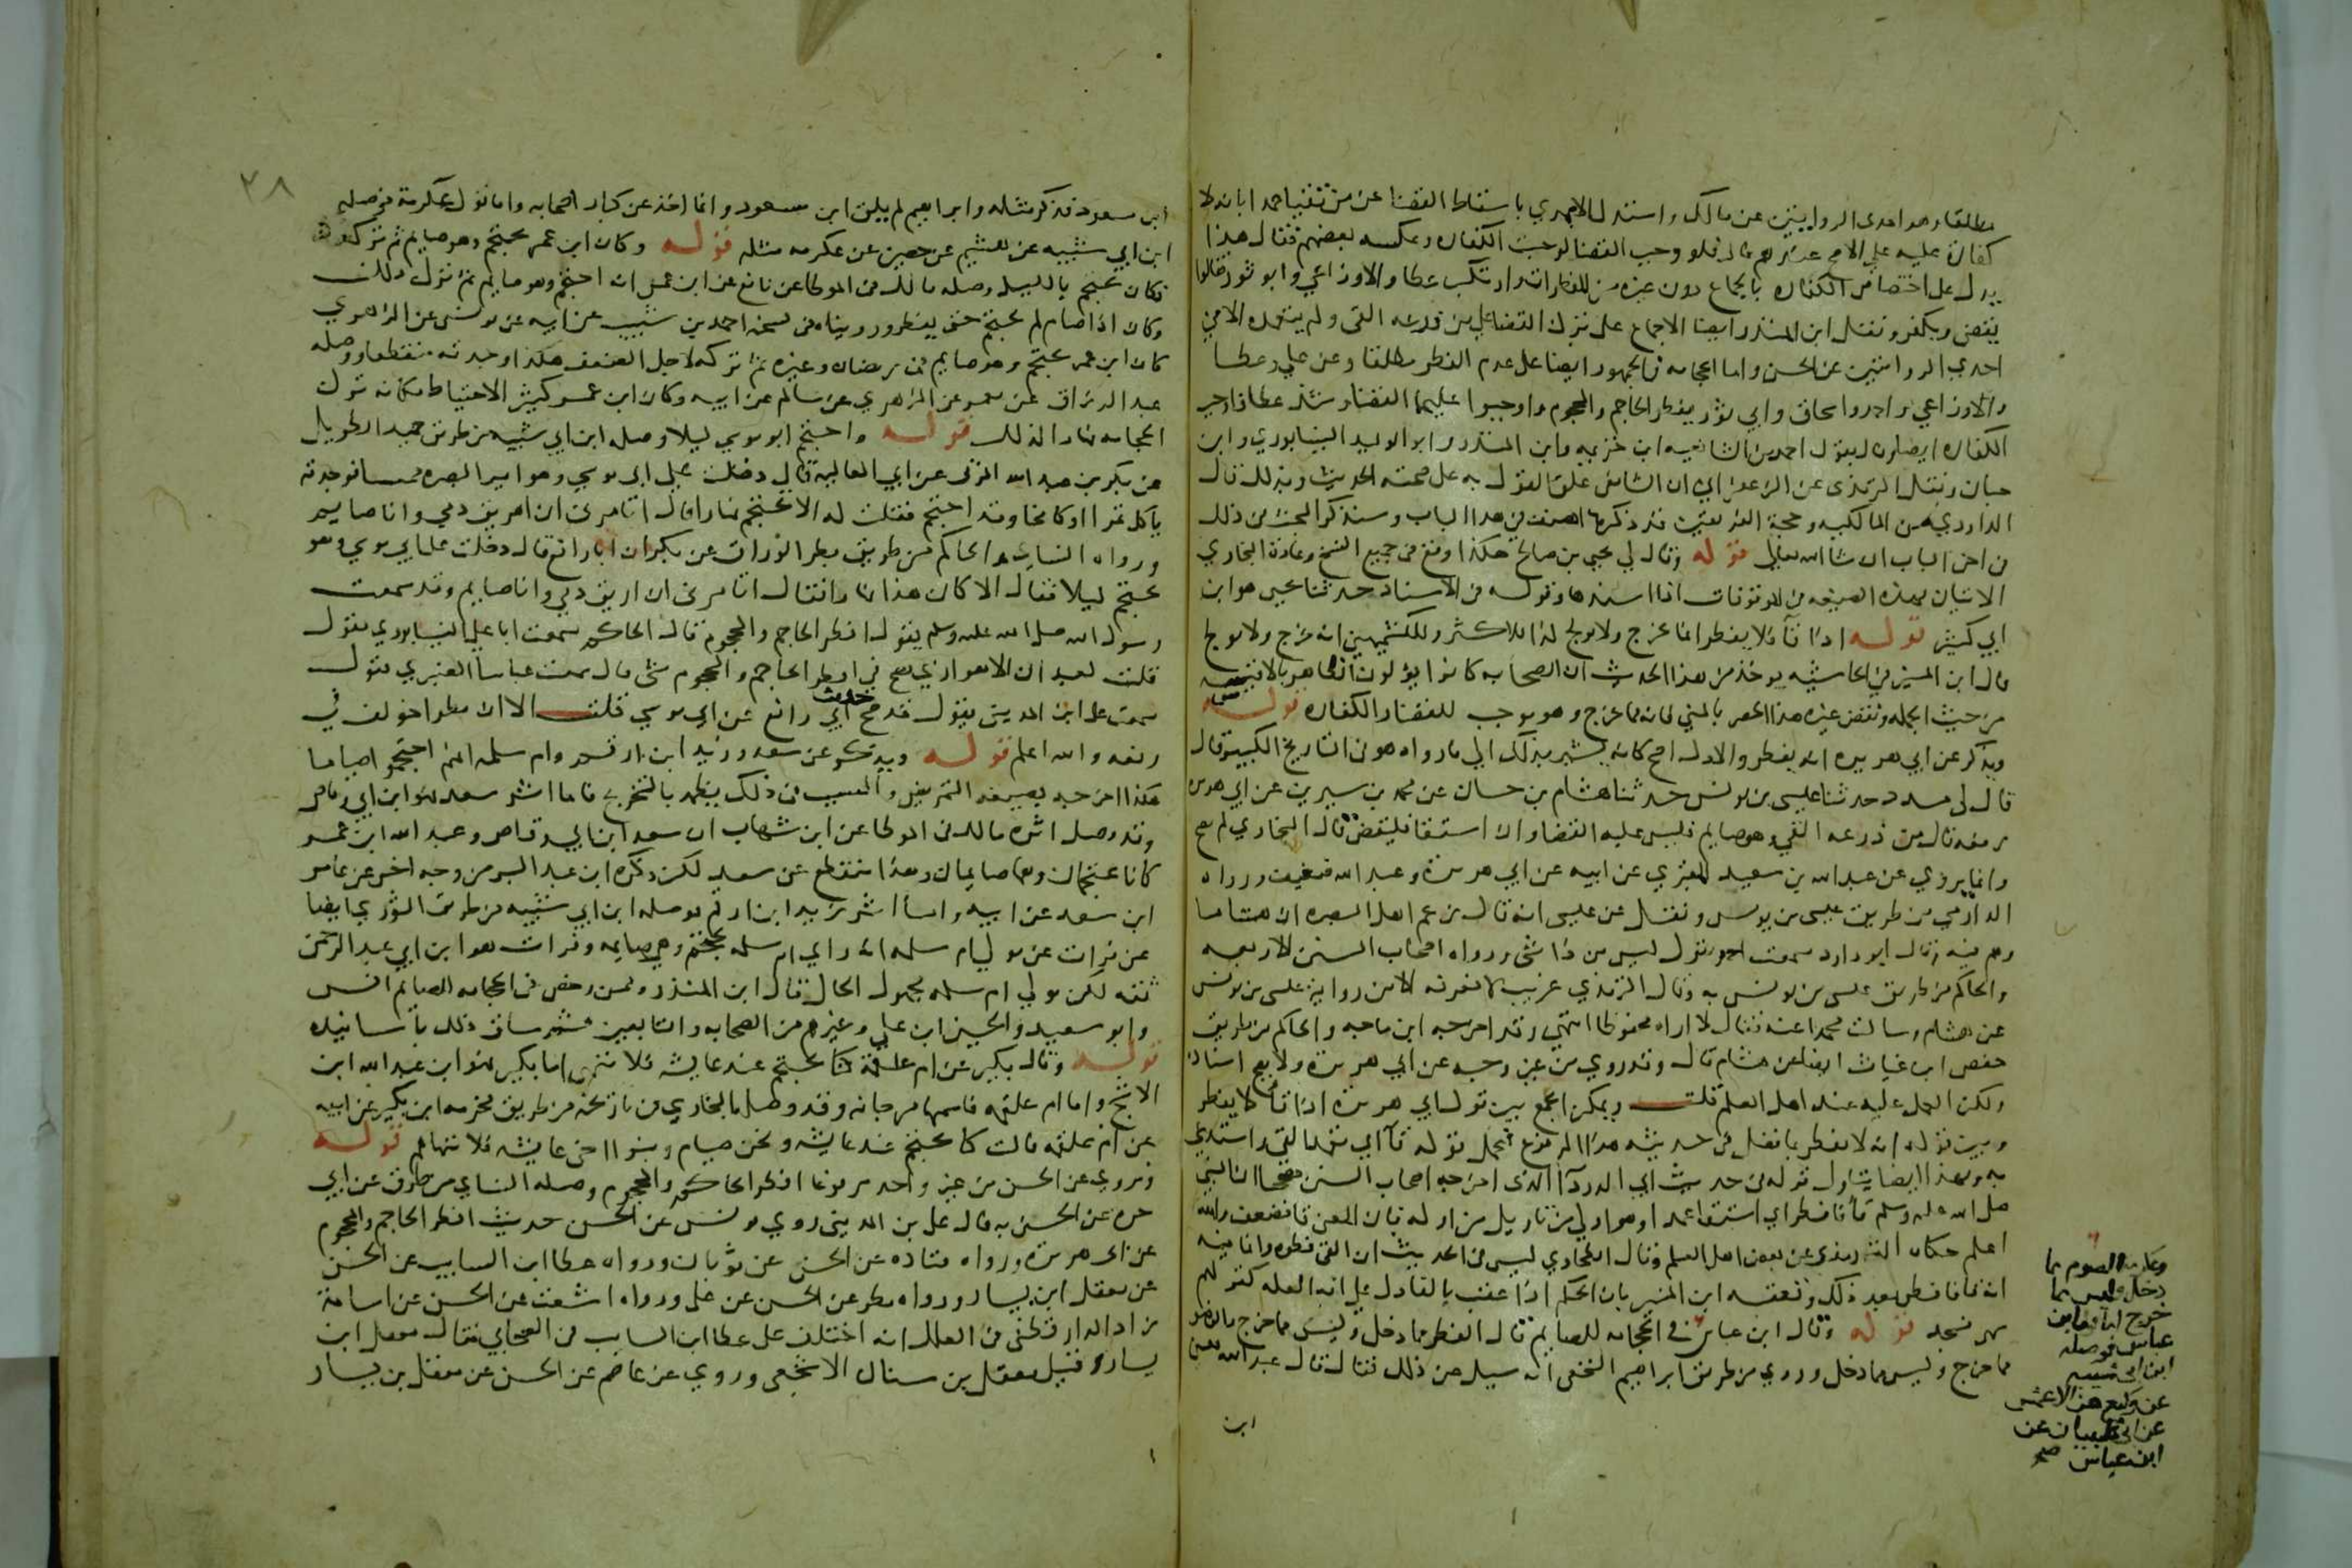 مطلقا وهو احدى الروايتين عن مالك واستدل الابهري باسقاط القضا عن من تقيا عمدا بانه لا
كفارة عليه على الاصح عندهم قال فلو وجب القضا لوجبت الكفاره وعكسه بعضهم فقال هذا
يدل على اختصاص الكفاره بالجماع دون غيره من المفطرات وارتكب عطا والاوزاعي وابو ثور فقالوا
يقضي ويكفر ونقل ابن المنذر ايضا الاجماع على ترك القضا على من ذرعه القي ولم يتعمده الا في
احدى الروايتين عن الحسن واما الحجامه فالجمهور ايضا على عدم الفطر مطلقا وعن علي وعطا
والاوزاعي واحمد واسحاق وابي ثور يفطر الحاجم والمحجوم واوجبوا عليهما القضا وشذ عطا فاوجب
الكفاره ايضا وبقول احمد من الشافعيه ابن خزيمه وابن المنذر وابو الوليد النيسابوري وابن
حبان ونقل الترمذي عن الزعفراني ان الشافعي علق القول به على صحته الحديث وبذلك قال
الداودي من المالكيه وحجة الفريقين قد ذكرها المصنف في هذا الباب وسنذكر البحث في ذلك
في اخر الباب ان شا الله تعالى قوله وقال لي يحيى بن صالح هكذا وقع في جميع النسخ وعادة البخاري
الاتيان بهذه الصيغه في الموقوفات اذا اسندها وقوله في الاسناد حدثنا يحيى هو ابن
ابي كثير قوله اذا قآ فلا يفطر انما يخرج ولا يولج كذا للاكثر وللكشميهني انه يخرج ولا يولج
قال ابن المنير في الحاشيه يوخذ من هذا الحديث ان الصحابه كانوا يؤلون الظاهر بالاقيسه
من حيث الجمله ونقض غيره هذا الحصر بالمني فانه مما يخرج وهو موجب للقضا والكفاره قوله
ويذكر عن ابي هريره انه يفطر والاول اصح كانه يشير بذلك الى ما رواه هو في التاريخ الكبير قال
قال لي مسدد حدثنا عيسى بن يونس حدثنا هشام بن حسان عن محمد بن سيرين عن ابي هريره
رفعه قال من ذرعه القي وهو صايم فليس عليه القضا وان استقا فليقض قال البخاري لم يصح
وانما يروي عن عبد الله بن سعيد المقبري عن ابيه عن ابي هريرة وعبد الله ضعيف ورواه
الدارمي من طريق عيسى بن يونس ونقل عن عيسى انه قال زعم اهل البصره ان هشاما
وهم فيه وقال ابو داود سمعت احمد يقول ليس من ذا شى ورواه اصحاب السنن الاربعه
والحاكم من طريق عيسى بن يونس به وقال الترمذي غريب لا نعرفه الا من رواية عيسى بن يونس
عن هشام وسالت محمدا عنه فقال لا اراه محفوظا انتهى وقد اخرجه ابن ماجه والحاكم من طريق
حفص ابن غياث ايضا عن هشام قال وقد روي من غير وجه عن ابي هريرة ولا يصح اسناده
ولكن العمل عليه عند اهل العلم قلت ويمكن الجمع بين قول ابي هريرة اذا قا لا يفطر
وبين قوله انه لا يفطر بما نقل في حديثه هذا المرفوع فيحمل قوله قآ اي تعمد القي واستدعي
به وبهذا ايضا يتاول قوله في حديث ابي الدردآ الذي اخرجه اصحاب السنن مصححا ان النبي
صلى الله عليه وسلم قآ فافطر اي استقا عمدا وهو اولى من تاويل من اوله بان المعنى قا فضعف والله
اعلم حكاه الترمذي عن بعض اهل العلم وقال الطحاوي ليس في الحديث ان القي فطره وانما فيه
انه قا فافطر بعد ذلك وتعقبه ابن المنير بان الحكم اذا عقب بالفا دل على انه العله كقولهم
سهى فسجد قوله وقال ابن عباس في الحجامه للصايم قال الفطر مما دخل وليس مما خرج
مما خرج وليس مما دخل وروي من طريق ابراهيم النخعي انه سيل عن ذلك فقال قال عبد الله يعني
ابن
وعكرمه الصوم مما
دخل وليس مما
خرج اما ابن
عباس فوصله
ابن ابي شيبه
عن وكيع عن الاعمش
عن ابي ظبيان عن
ابن عباس صح
٣٨
ابن مسعود فذكر مثله وابراهيم لم يلق ابن مسعود وانما اخذ عن كبار اصحابه واما قول عكرمة فوصله
ابن ابي شيبه عن هشيم عن حصين عن عكرمه مثله قوله وكان ابن عمر يحتجم وهو صايم ثم تركه
فكان يحتجم بالليل وصله مالك في الموطا عن نافع عن ابن عمر انه احتجم وهو صايم ثم ترك ذلك
وكان اذا صام لم يحتجم حتى يفطر ورويناه في نسخة احمد بن شبيب عن ابيه عن يونس عن الزهري
كان ابن عمر يحتجم وهو صايم في رمضان وغيره ثم تركه لاجل الضعف هكذا وجدته منقطعا ووصله
عبد الرزاق عن معمر عن الزهري عن سالم عن ابيه وكان ابن عمر كثير الاحتياط فكانه ترك
الحجامه نهارا لذلك قوله واحتجم ابو موسي ليلا وصله ابن ابي شيبه من طريق حميد الطويل
عن بكر بن عبد الله المزني عن ابي العالية قال دخلت على ابي موسي وهو امير البصره ممسيا فوجدته
ياكل تمرا وكامخا وقد احتجم فقلت له الا تحتجم نهارا قال اتامرني ان اهريق دمي وانا صايم
ورواه النساي والحاكم من طريق مطر الوراق عن بكر ان ابا رافع قال دخلت على ابي موسي وهو
يحتجم ليلا فقال الا كان هذا نهارا فقال اتامرني ان اريق دمي وانا صايم وقد سمعت
رسول الله صلى الله عليه وسلم يقول افطر الحاجم والمحجوم قال الحاكم سمعت ابا علي النيسابوري يقول
قلت لعبدان الاهوازي يصح في افطر الحاجم والمحجوم شى قال سمعت عباسا العنبري يقول
سمعت علي ابن المديني يقول قد صح حديث ابي رافع عن ابي موسي قلت الا ان مطرا خولف في
رفعه والله اعلم قوله ويذكر عن سعد وزيد ابن ارقم وام سلمه انهم احتجموا صياما
هكذا اخرجه بصيغة التمريض والسبب في ذلك يظهر بالتخريج فاما اثر سعد وهو ابن ابي وقاص
وقد وصل اثره مالك في الموطا عن ابن شهاب ان سعد ابن ابي وقاص وعبد الله ابن عمر
كانا يحتجمان وهما صايمان وهذا منقطع عن سعد لكن ذكره ابن عبد البر من وجه اخر عن عامر
ابن سعد عن ابيه واما اثر زيد ابن ارقم فوصله ابن ابي شيبه من طريق الثوري ايضا
عن فرات عن مولى ام سلمه انه راي ام سلمه تحتجم وهي صايمه وفرات هو ابن ابي عبد الرحمن
ثقه لكن مولي ام سلمه مجهول الحال قال ابن المنذر وممن رخص في الحجامه للصايم انس
وابو سعيد والحسين ابن علي وغيرهم من الصحابه والتابعين ثم ساق ذلك باسانيده
قوله وقال بكير عن ام علقمة كنا نحتجم عند عايشه فلا تنهى اما بكير فهو ابن عبد الله ابن
الاشج واما ام علقمه فاسمها مرجانه وقد وصله البخاري في تاريخه من طريق مخرمه ابن بكير عن ابيه
عن ام علقمه قالت كنا نحتجم عند عايشه ونحن صيام وبنو اخي عايشه فلا تنهاهم قوله
ويروي عن الحسن عن غير واحد مرفوعا افطر الحاجم والمحجوم وصله النساي من طرق عن ابي
حرة عن الحسن به قال علي بن المديني روي يونس عن الحسن حديث افطر الحاجم والمحجوم
عن ابي هريرة ورواه قتاده عن الحسن عن ثوبان ورواه عطا ابن السايب عن الحسن
عن معقل ابن يسار ورواه مطر عن الحسن عن علي ورواه اشعث عن الحسن عن اسامة
زاد الدارقطني في العلل انه اختلف على عطا ابن السايب في الصحابي فقال معقل ابن
يسار وقيل معقل بن سنان الاشجعي وروي عن عاصم عن الحسن عن معقل بن يسار